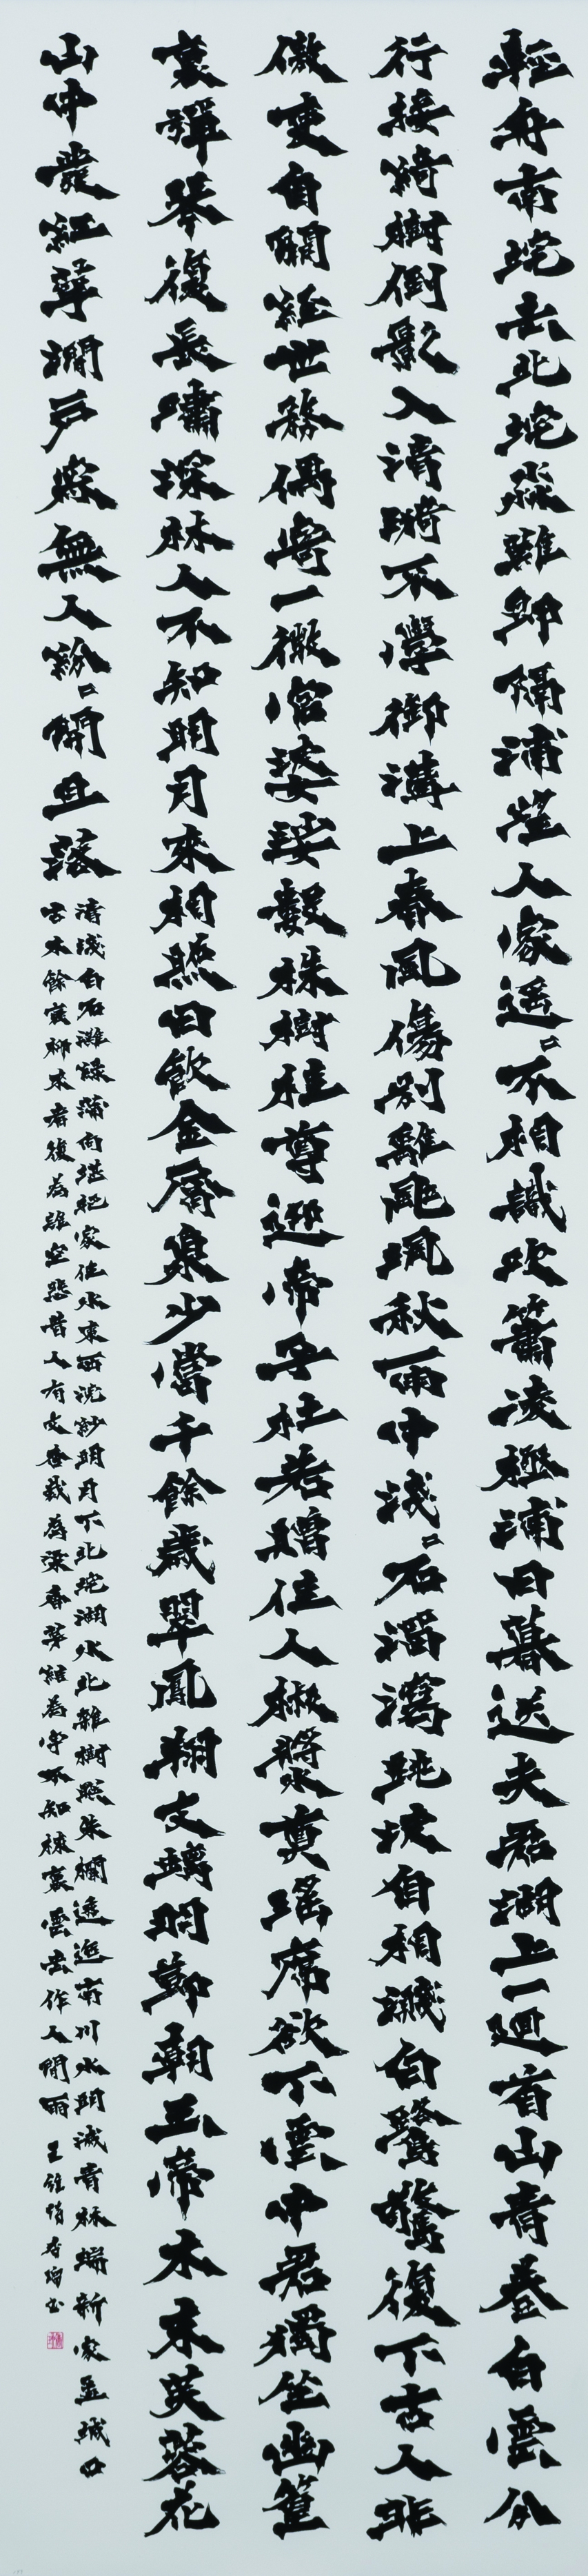 輕舟南垞去北垞淼難即隔浦望人家遙〻不相識吹簫凌極浦日暮送夫君湖上一迴首山青卷白雲分
行接綺樹倒影入清漪不學御溝上春風傷別離颯颯秋雨中淺〻石溜瀉跳波自相濺白鷺驚復下古人非
傲吏自闕經世務偶寄一微官婆娑數株樹桂尊迎帝子杜若贈佳人椒漿奠瑤席欲下雲中君獨坐幽篁
裏彈琴復長嘯深林人不知明月來相照日飲金屑泉少當千餘歲翠鳳翔文螭羽節朝玉帝木末芙蓉花
山中發紅萼澗戶寂無人紛〻開且落
清淺白石灘綠蒲向堪把家住水東西浣紗明月下北垞湖水北雜樹映朱欄逶迤南川水明滅青林端新家孟城口
古木餘衰柳來者復為誰空悲昔人有文杏裁為梁香茅結為宇不知棟裏雲去作人間雨 王維詩